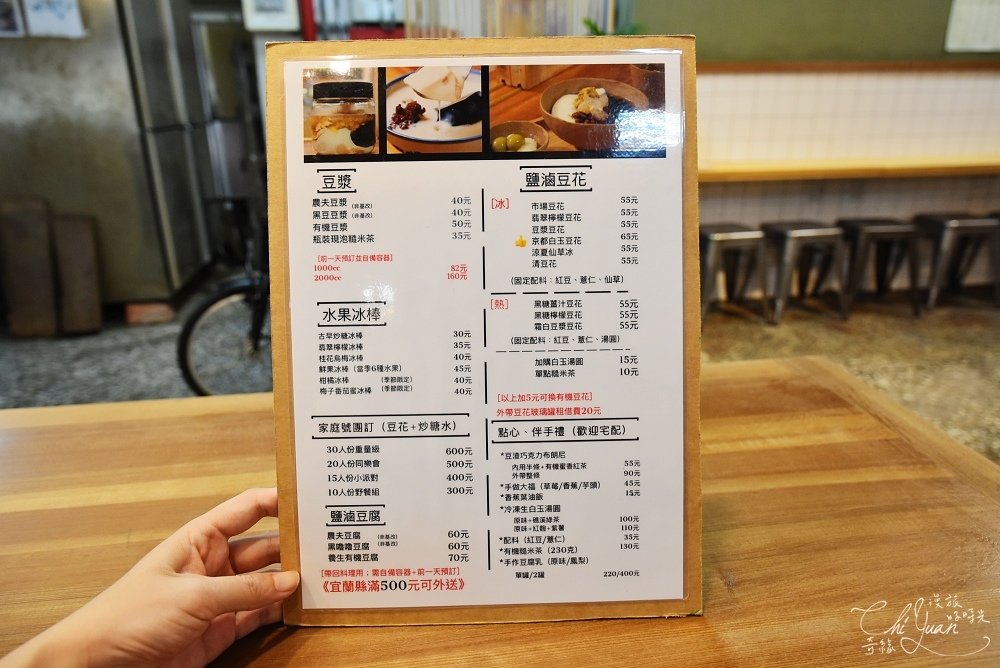 豆漿
農夫豆漿 (非基改) 40元
黑豆豆漿 (非基改) 40元
有機豆漿 50元
瓶裝現泡糙米茶 35元
[前一天預訂並自備容器]
1000cc 82元
2000cc 160元
水果冰棒
古早炒糖冰棒 30元
翡翠檸檬冰棒 35元
桂花烏梅冰棒 40元
鮮果冰棒（當季6種水果） 45元
柑橘冰棒 （季節限定） 40元
梅子番茄蜜冰棒 （季節限定） 40元
家庭號團訂（豆花+炒糖水）
30人份重量級 600元
20人份同樂會 500元
15人份小派對 400元
10人份野餐組 300元
鹽滷豆腐
農夫豆腐 (非基改) 60元
黑嚕嚕豆腐 (非基改) 60元
養生有機豆腐 70元
[帶回料理用；需自備容器+前一天預訂]
《宜蘭縣滿500元可外送》
鹽滷豆花
[冰] 市場豆花 55元
翡翠檸檬豆花 55元
豆漿豆花 55元
京都白玉豆花 65元
涼夏仙草冰 55元
清豆花 55元
（固定配料：紅豆、薏仁、仙草）
[熱] 黑糖薑汁豆花 55元
黑糖檸檬豆花 55元
霜白豆漿豆花 55元
（固定配料：紅豆、薏仁、湯圓）
加購白玉湯圓 15元
單點糙米茶 10元
[以上加5元可換有機豆花]
外帶豆花玻璃罐租借費20元
點心、伴手禮（歡迎宅配）
*豆渣巧克力布朗尼
內用半條+有機蜜香紅茶 55元
外帶整條 90元
*手做大福（草莓/香蕉/芋頭） 45元
*香蕉葉油飯 15元
*冷凍生白玉湯圓
原味+礁溪綠茶 100元
原味+紅麴+紫薯 110元
*配料（紅豆/薏仁） 35元
*有機糙米茶（230克） 130元
*手作豆腐乳（原味/鳳梨）
單罐/2罐 220/400元
Chi Yuan
奇緣